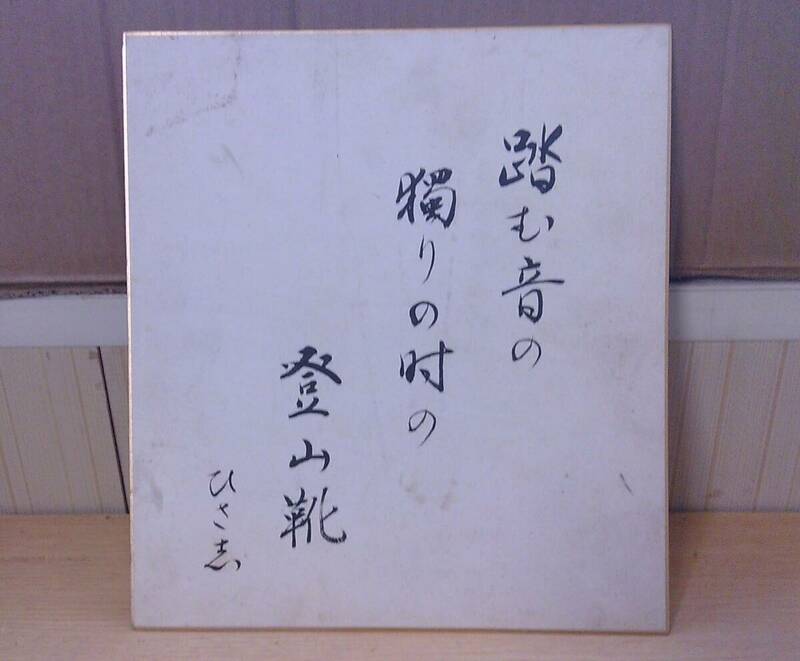 踏む音の
獨りの时の
登山靴
ひさ志